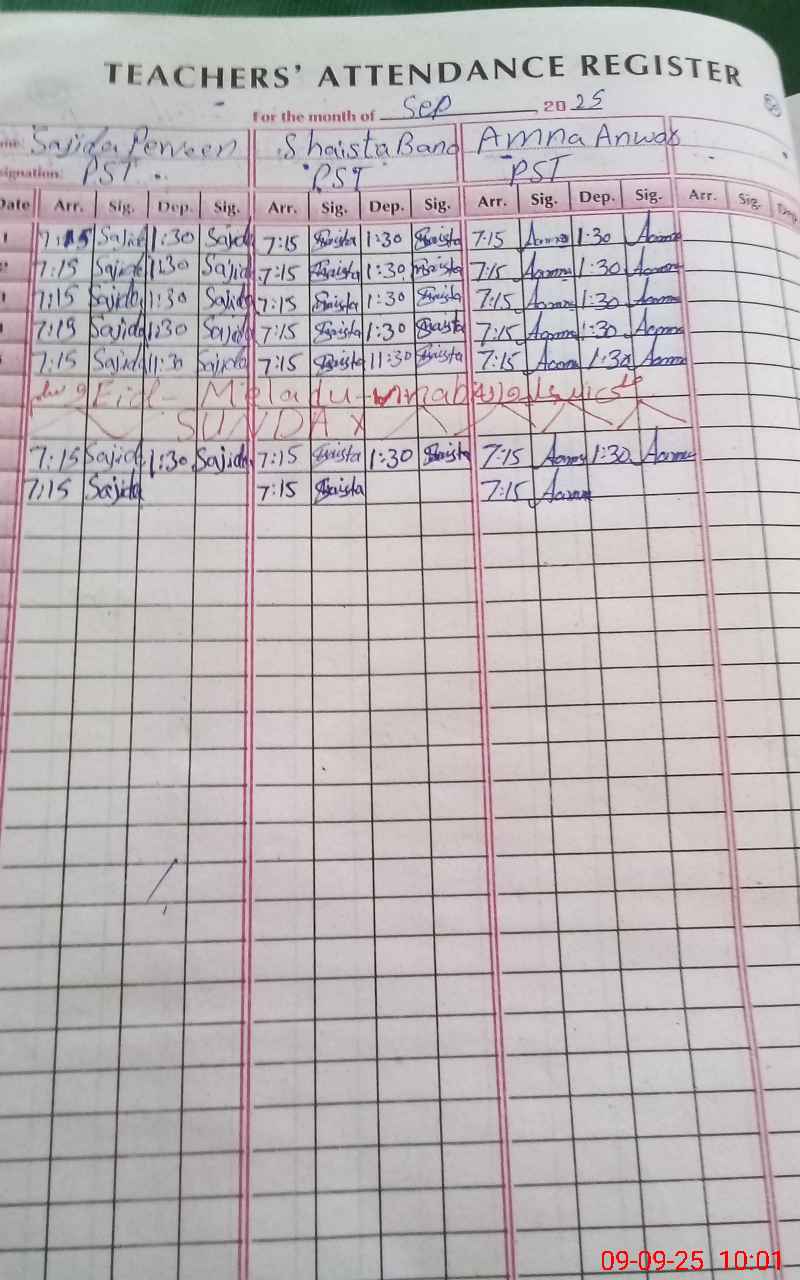 TEACHERS' ATTENDANCE REGISTER
For the month of Sep 2025
Sajida Perveen Shaista Bano Amna Anwar
PST PST PST
Date Arr. Sig. Dep. Sig. Arr. Sig. Dep. Sig. Arr. Sig. Dep. Sig. Arr. Sig. Dep.
1 7:15 Sajida 1:30 Sajida 7:15 Shaista 1:30 Shaista 7:15 Aamna 1:30 Aamna
7:15 Sajida 1:30 Sajida 7:15 Shaista 1:30 Shaista 7:15 Aamna 1:30 Aamna
7:15 Sajida 1:30 Sajida 7:15 Shaista 1:30 Shaista 7:15 Aamna 1:30 Aamna
7:15 Sajida 1:30 Sajida 7:15 Shaista 1:30 Shaista 7:15 Aamna 1:30 Aamna
7:15 Sajida 11:30 Sajida 7:15 Shaista 11:30 Shaista 7:15 Aamna 1:30 Aamna
Eid- Meladu-nnabi
SUNDAY
7:15 Sajida 1:30 Sajida 7:15 Shaista 1:30 Shaista 7:15 Aamna 1:30 Aamna
7:15 Sajida 7:15 Shaista 7:15 Aamna
09-09-25 10:01